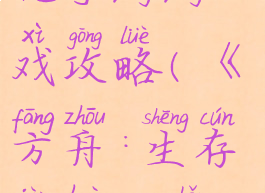 xì gōng lüè
戏攻略(《
fāng zhōu shēng cún
方舟:生存